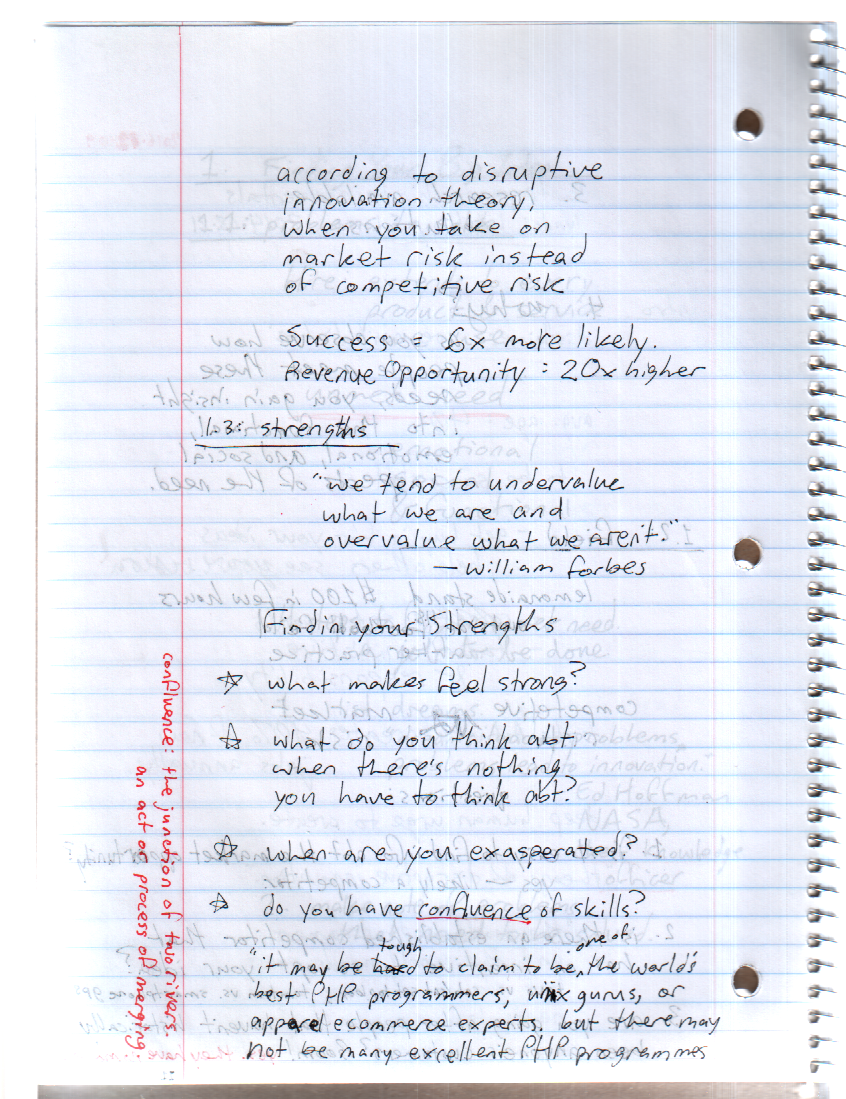 according to disruptive
innovation theory,
when you take on
market risk instead
of competitive risk
Success = 6x more likely.
Revenue Opportunity : 20x higher
1.3: strengths
"we tend to undervalue
what we are and
overvalue what we aren't."
— william forbes
Findin your Strengths
☆ what makes feel strong?
☆ what do you think abt
when there's nothing
you have to think abt?
☆ when are you exasperated?
☆ do you have confluence of skills?
"it may be tough to claim to be one of the world's
best PHP programmers, unix gurus, or
apparel ecommerce experts. but there may
not be many excellent PHP programmes
confluence: the junction of two rivers.
an act or process of merging.